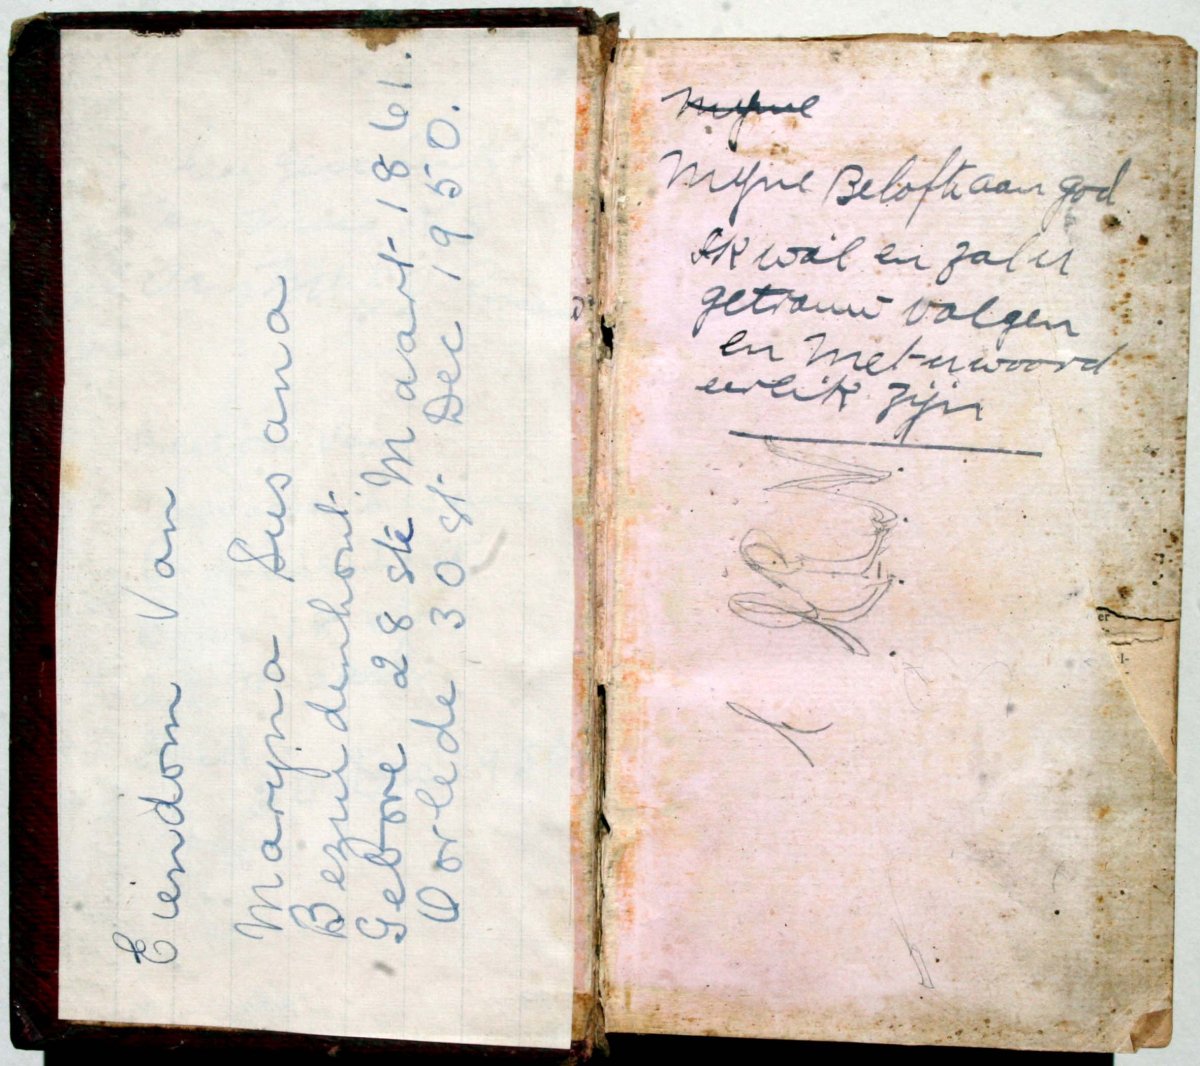 Eiendom Van
Maryna Susana
Bezuidenhout
Gebore 28ste Maart 1861.
Oorlede 30st Dec 1950.
Myne
Myne Belofte aan god
Ik wál en zal u
getrouw volgen
en Met u woord
eerlik zijn